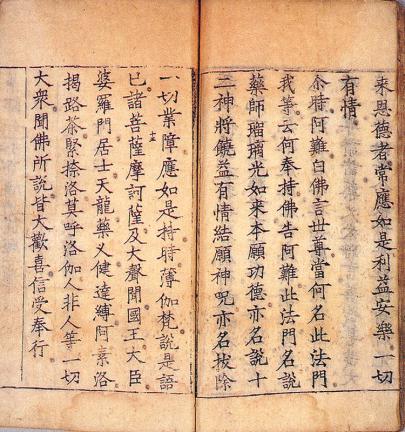 来恩德者常應如是利益安樂一切
有情
尒時阿難白佛言世尊當何名此法門
我等云何奉持佛告阿難此法門名說
藥師瑠璃光如来本願功德亦名說十
二神將饒益有情結願神呪亦名拔除
一切業障應如是持時薄伽梵說是語
已諸菩薩摩訶薩及大聲聞國王大臣
婆羅門居士天龍藥义健達縛阿素洛
揭路茶緊捺洛莫呼洛伽人非人等一切
大衆聞佛所說皆大歡喜信受奉行